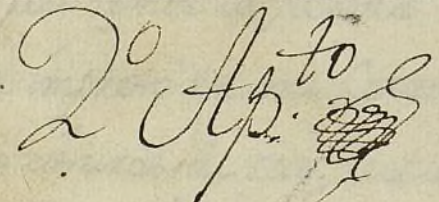 2º Ap.to